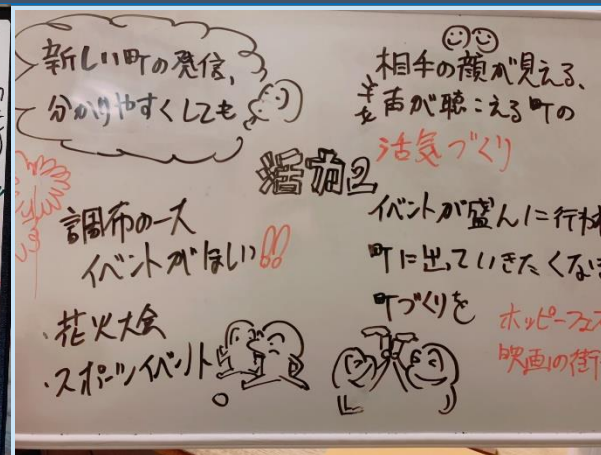 新しい町の発信、
分かりやすくしても
相手の顔が見える、
声が聴こえる町の
活気づくり
活力2
調布の一大
イベントがほしい!!
・花火大会
・スポーツイベント
イベントが盛んに行わ
町に出ていきたくな
町づくりを
ホッピーフェス
映画の街